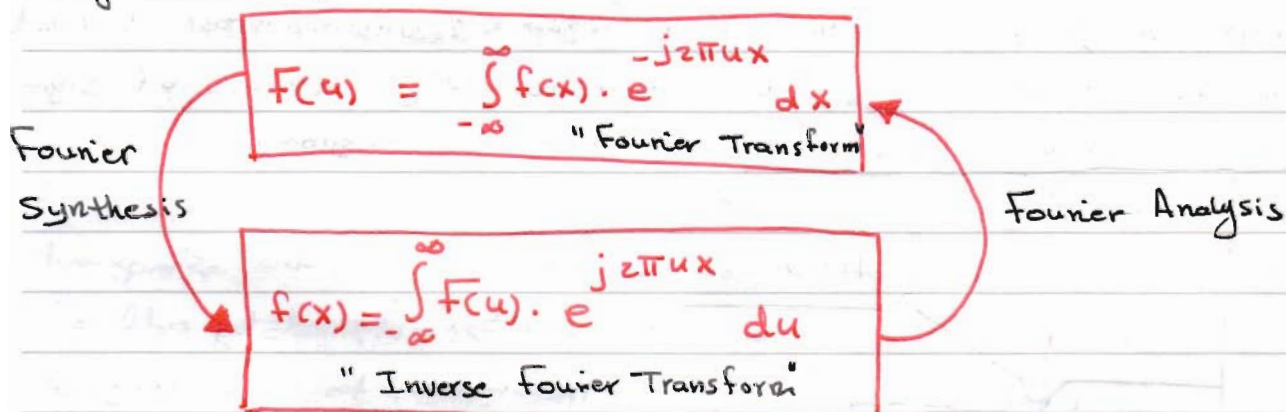 F(u) = ∫_{-∞}^{∞} f(x) · e^{-j2πux} dx
"Fourier Transform"
Fourier
Synthesis
Fourier Analysis
f(x) = ∫_{-∞}^{∞} F(u) · e^{j2πux} du
"Inverse Fourier Transform"